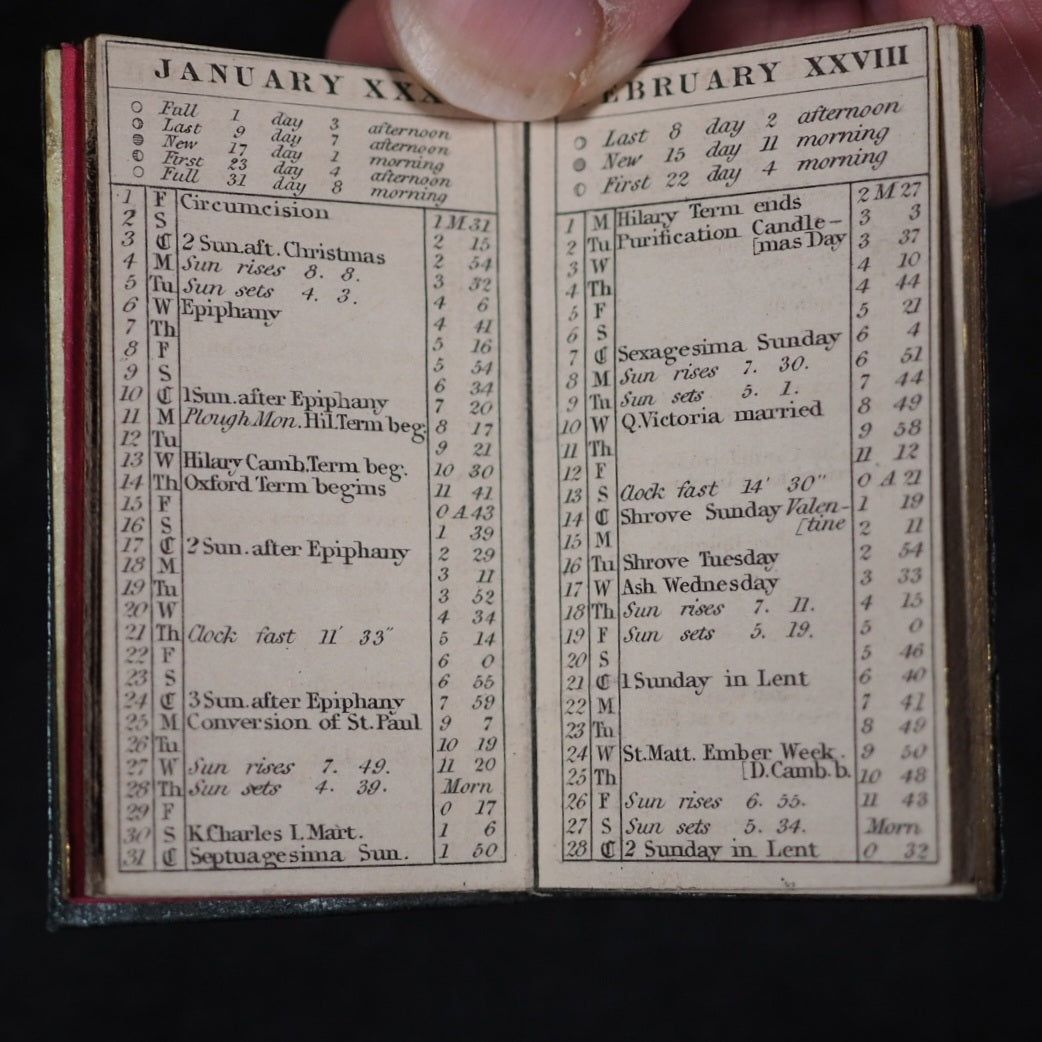 JANUARY XXX
Full 1 day 3 afternoon
Last 9 day 7 afternoon
New 17 day 1 morning
First 23 day 4 afternoon
Full 31 day 8 morning
1 F Circumcision 1 M 31
2 S 2 15
3 C 2 Sun. aft. Christmas 2 54
4 M Sun rises 8. 8. 3 32
5 Tu Sun sets 4. 3. 4 6
6 W Epiphany 4 41
7 Th 5 16
8 F 5 54
9 S 6 34
10 C 1 Sun. after Epiphany 7 20
11 M Plough Mon. Hil. Term beg. 8 17
12 Tu 9 21
13 W Hilary Camb. Term beg. 10 30
14 Th Oxford Term begins 11 41
15 F 0 A 43
16 S 1 39
17 C 2 Sun. after Epiphany 2 29
18 M 3 11
19 Tu 3 52
20 W 4 34
21 Th Clock fast 11' 33" 5 14
22 F 6 0
23 S 6 55
24 C 3 Sun. after Epiphany 7 59
25 M Conversion of St. Paul 9 7
26 Tu 10 19
27 W Sun rises 7. 49. 11 20
28 Th Sun sets 4. 39. Morn
29 F 0 17
30 S K. Charles I. Mart. 1 6
31 C Septuagesima Sun. 1 50
EBRUARY XXVIII
Last 8 day 2 afternoon
New 15 day 11 morning
First 22 day 4 morning
1 M Hilary Term ends 2 M 27
2 Tu Purification Candle- 3 3
[mas Day
3 W 3 37
4 Th 4 10
5 F 4 44
6 S 5 21
7 C Sexagesima Sunday 6 4
8 M Sun rises 7. 30. 6 51
9 Tu Sun sets 5. 1. 7 44
10 W Q. Victoria married 8 49
11 Th 9 58
12 F 11 12
13 S Clock fast 14' 30" 0 A 21
14 C Shrove Sunday Valen- 1 19
[tine
15 M 2 11
16 Tu Shrove Tuesday 2 54
17 W Ash Wednesday 3 33
18 Th Sun rises 7. 11. 4 15
19 F Sun sets 5. 19. 5 0
20 S 5 46
21 C 1 Sunday in Lent 6 40
22 M 7 41
23 Tu 8 49
24 W St. Matt. Ember Week. 9 50
25 Th [D. Camb. b. 10 48
26 F Sun rises 6. 55. 11 43
27 S Sun sets 5. 34. Morn
28 C 2 Sunday in Lent 0 32